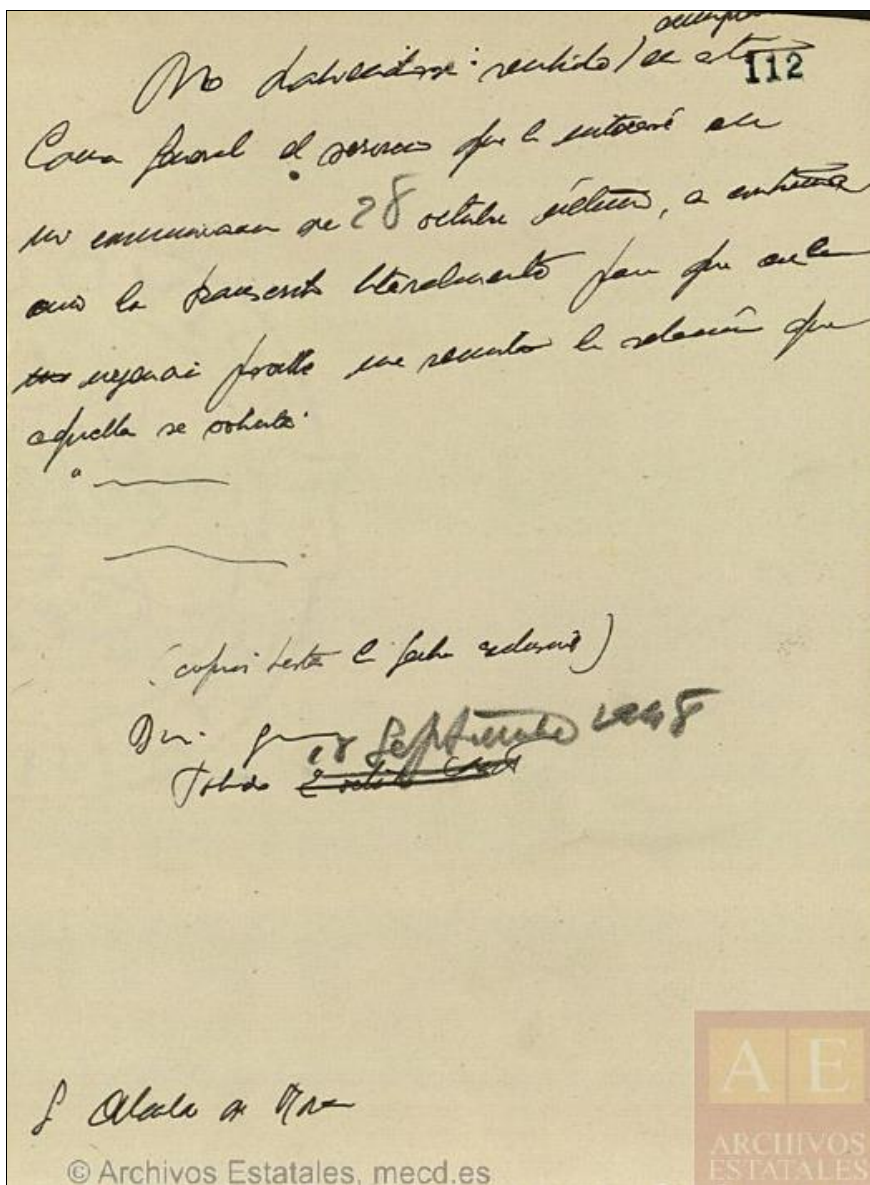 112
No habiéndose rendido en esta
Causa General el servicio que le interesé en
mi comunicación de 28 octubre último, a continua
ción la transcribo literalmente para que con la
urgencia posible me remita la relación que
aquella se solicita.
(copiar hasta la fecha exclusive)
18 Septiembre 1948
Toledo
Alcalde de Mora
© Archivos Estatales, mecd.es
AE
ARCHIVOS
ESTATALES